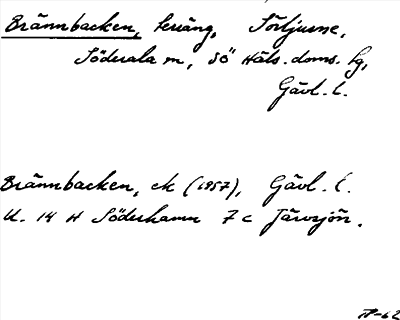 Brännbacken, terräng, Sörljusne,
Söderala sn, SÖ Häls. doms. tg,
Gävl. l.
Brännbacken, ek (1957), Gävl. l.
U. 14 H Söderhamn 7 c Järvsjön.